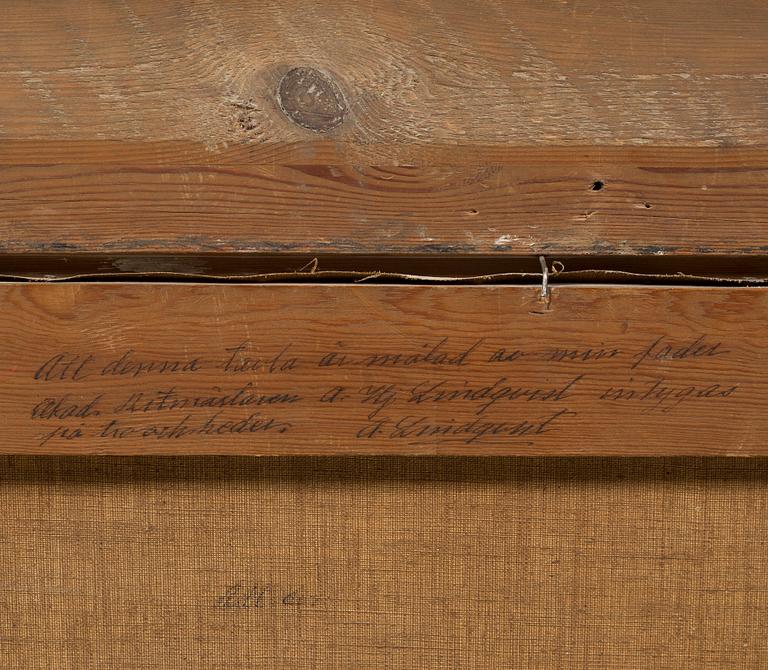 Att denna tavla är målad av min fader
Akad. Ritmästaren A. Hj. Lindqvist intygas
på tro och heder. A Lindqvist